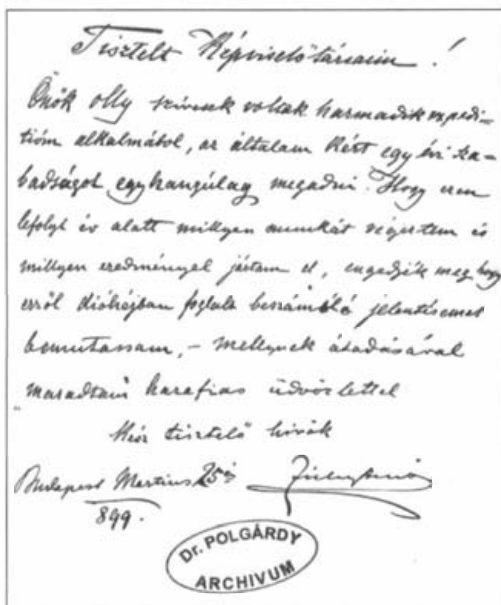 Tisztelt Képviselőtársaim !
Önök olly szívesek voltak harmadik expedi-
tióm alkalmából, az általam kért egy évi sza-
badságot egyhangúlag megadni. Hogy ezen
lefolyt év alatt millyen munkát végeztem és
millyen eredménnyel jártam el, engedjék meg hogy
erről dióhéjban foglalt beszámóló jelentésemet
bemutassam, – mellynek átadásával
maradtam hazafias üdvözlettel
kész tisztelő hívök
Budapest Martius 25én
899.
Dr. POLGÁRDY
ARCHIVUM